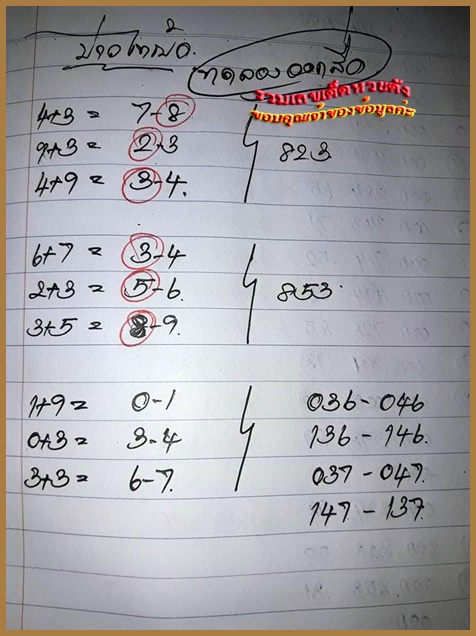 ทดลองออกสื่อ
รวมเลขเด็ดหวยดัง
ขอบคุณเจ้าของข้อมูลค่ะ
4+3 = 7-8
9+3 = 2-3
4+9 = 3-4.
823
6+7 = 3-4
2+3 = 5-6.
3+5 = 8-9.
853.
1+9 = 0-1
0+3 = 3-4
3+3 = 6-7.
036 - 046
136 - 146.
037 - 047.
147 - 137.